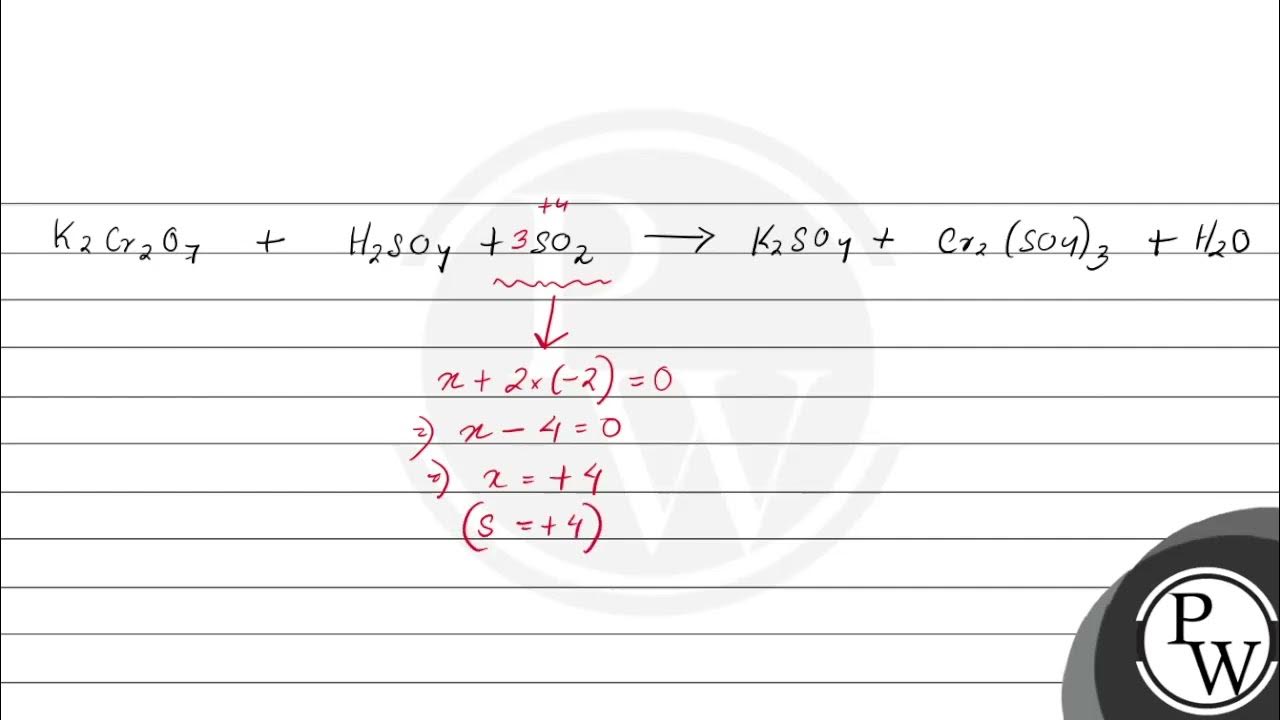 +4
K2Cr2O7 + H2SO4 + 3SO2 → K2SO4 + Cr2(SO4)3 + H2O
x + 2×(-2) = 0
⇒) x - 4 = 0
⇒) x = +4
(S = +4)
PW
PW